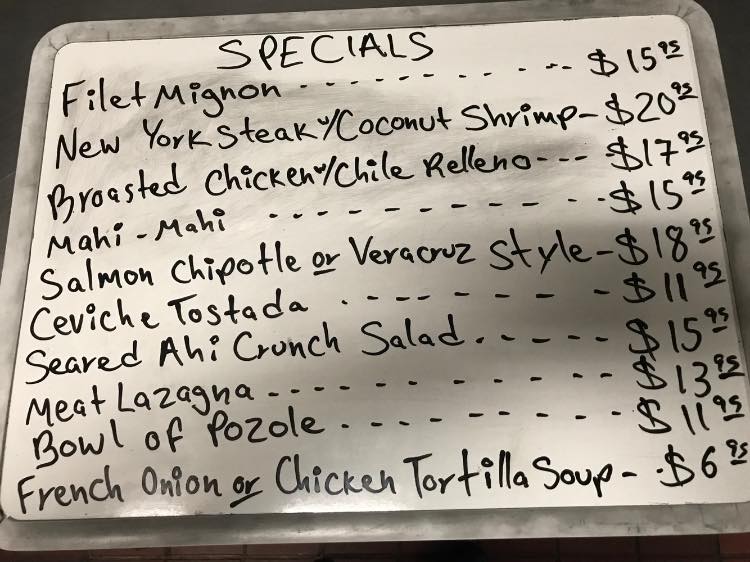 SPECIALS
Filet Mignon - - - - - - - - - $15.95
New York Steak w/Coconut Shrimp - $20.95
Broasted Chicken w/Chile Relleno - - - $17.95
Mahi - Mahi - - - - - - - - - - $15.95
Salmon Chipotle or Veracruz Style - $18.95
Ceviche Tostada - - - - - - - - $11.95
Seared Ahi Crunch Salad - - - - - $15.95
Meat Lazagna - - - - - - - - - - $13.95
Bowl of Pozole - - - - - - - - $11.95
French Onion or Chicken Tortilla Soup - - $6.95